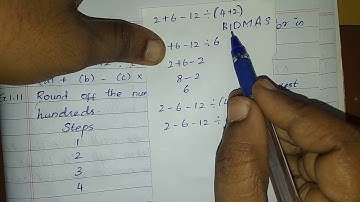 2+6-12÷(4+2)
BIDMAS
+6-12÷6
2+6-2
8-2
6
2-6-12÷(4
2-6-12÷
(b) - (c) x
Round off the
hundreds.
Steps
1
2
3
4